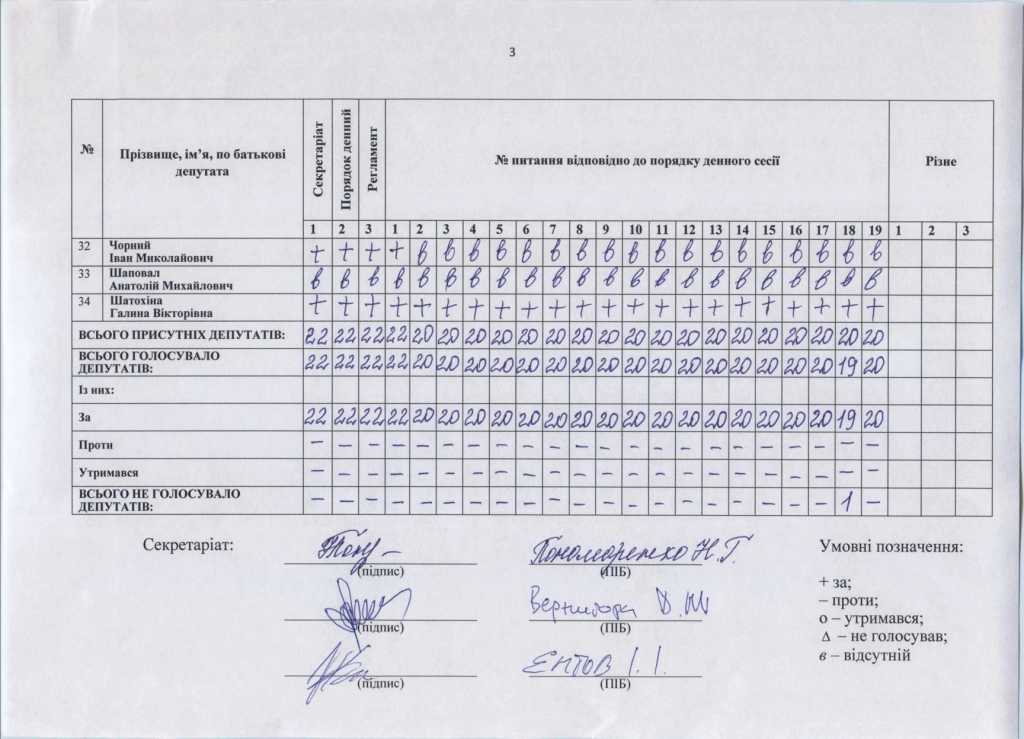 3
№ Прізвище, ім’я, по батькові депутата Секретаріат Порядок денний Регламент № питання відповідно до порядку денного сесії Різне
1 2 3 1 2 3 4 5 6 7 8 9 10 11 12 13 14 15 16 17 18 19 1 2 3
32 Чорний Іван Миколайович + + + + в в в в в в в в в в в в в в в в в в
33 Шаповал Анатолій Михайлович в в в в в в в в в в в в в в в в в в в в в в
34 Шатохіна Галина Вікторівна + + + + + + + + + + + + + + + + + + + + + +
ВСЬОГО ПРИСУТНІХ ДЕПУТАТІВ: 22 22 22 22 20 20 20 20 20 20 20 20 20 20 20 20 20 20 20 20 20 20
ВСЬОГО ГОЛОСУВАЛО ДЕПУТАТІВ: 22 22 22 22 20 20 20 20 20 20 20 20 20 20 20 20 20 20 20 20 19 20
Із них:
За 22 22 22 22 20 20 20 20 20 20 20 20 20 20 20 20 20 20 20 20 19 20
Проти – – – – – – – – – – – – – – – – – – – – – –
Утримався – – – – – – – – – – – – – – – – – – – – – –
ВСЬОГО НЕ ГОЛОСУВАЛО ДЕПУТАТІВ: – – – – – – – – – – – – – – – – – – – – 1 –
Секретаріат: Пономаренко Н.Г. Умовні позначення:
(підпис) (ПІБ)
+ за;
– проти;
Вернигора Д.М
о – утримався;
(підпис) (ПІБ)
Δ – не голосував;
в – відсутній
ЄНТОВ І. І.
(підпис) (ПІБ)